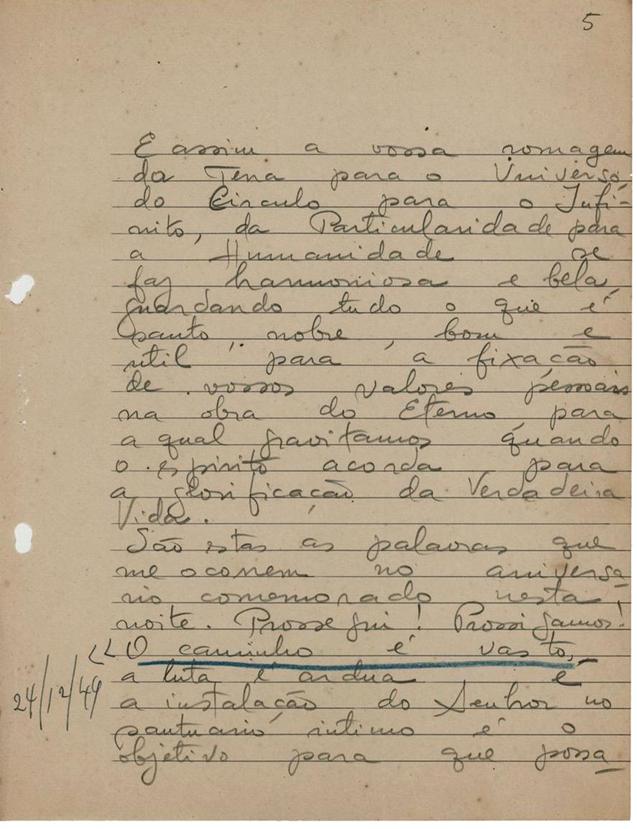 5
E assim a vossa romagem
da Terra para o Universo,
do Circulo para o Infi-
nito, da Particularidade para
a Humanidade se
faz harmoniosa e bela,
guardando tudo o que é
santo, nobre, bom e
util para a fixação
de vossos valores pessoais
na obra do Eterno, para
a qual gravitamos quando
o espirito acorda para
a glorificação da Verdadeira
Vida.
São estas as palavras que
me ocorrem no aniversa-
rio comemorado nesta
noite. Prossegui! Prossigamos!
<<O caminho é vasto,
a luta é ardua e
24/12/49
a instalação do Senhor no
santuario intimo é o
objetivo para que possa